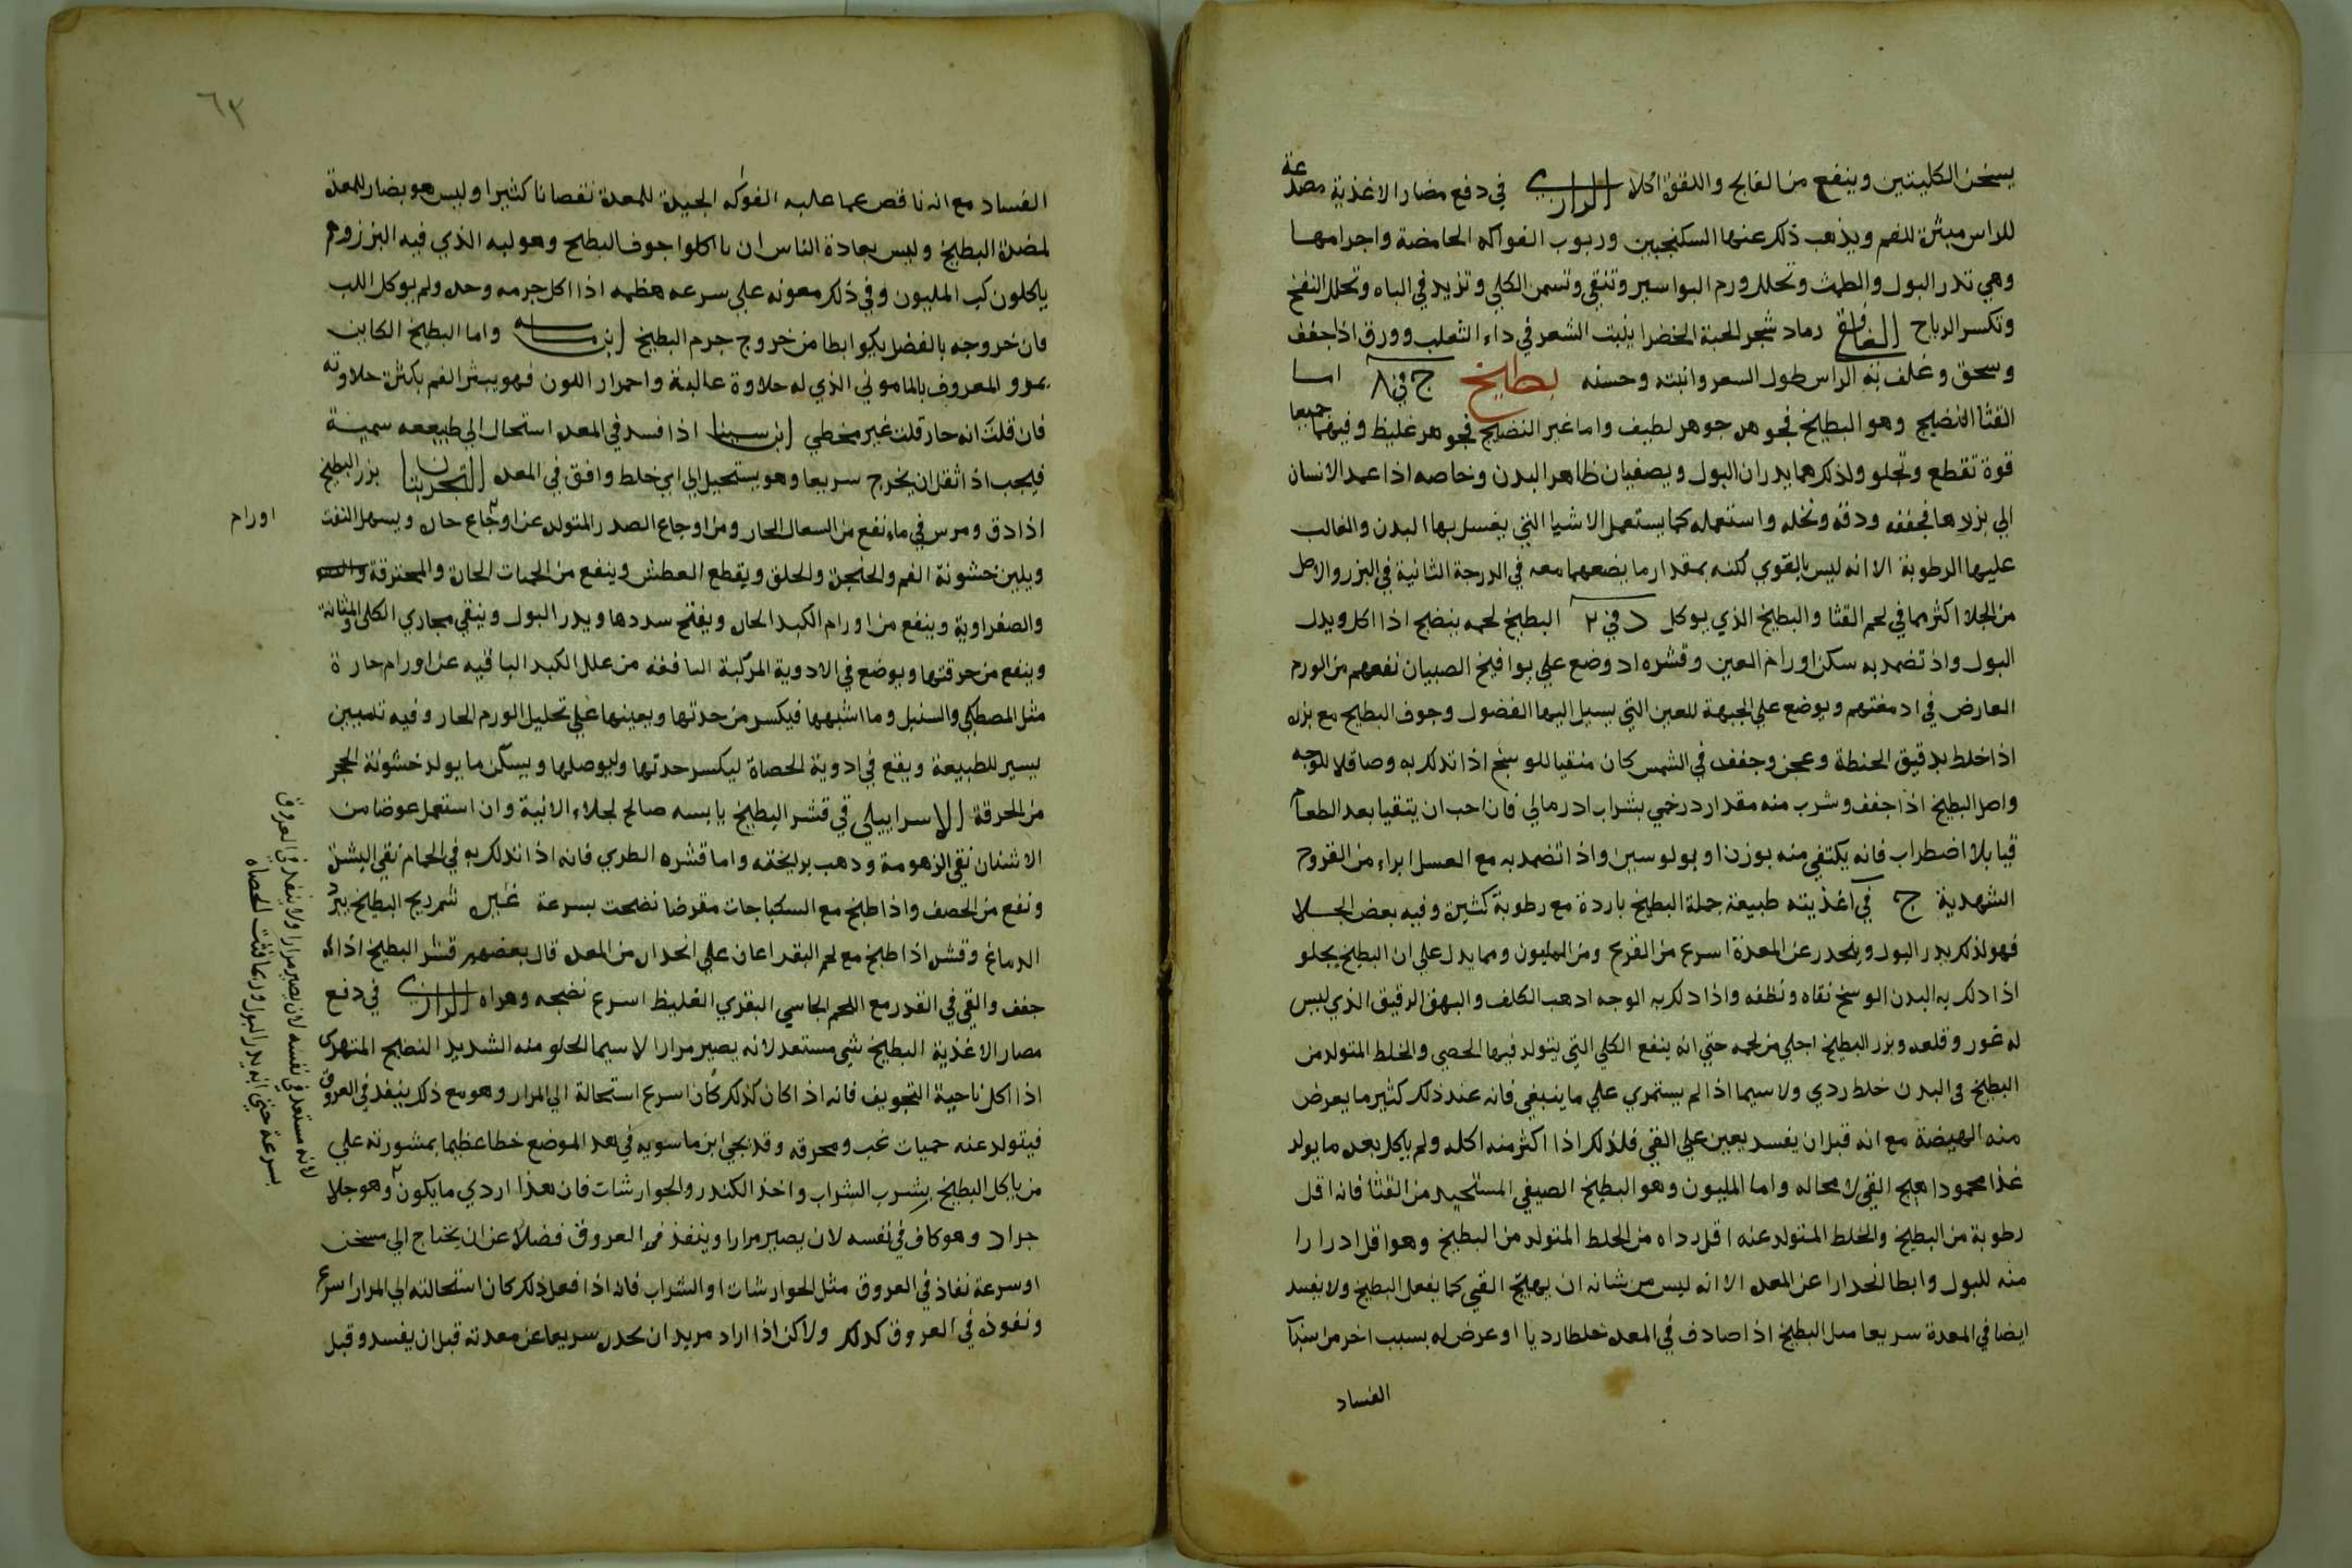 يسخن الكليتين وينفع من الفالج واللقوة اكلا الرازي في دفع مضار الاغذية مصدعة
للراس مبثرة للفم ويذهب ذلك عنها السكنجبين وربوب الفواكه الحامضة واجرامها
وهي تدر البول والطمث وتحلل ورم البواسير وتنقي وتسمن الكلي وتزيد في الباه وتحلل النفخ
وتكسر الرياح الغافقي رماد شجر الحبة الخضرا ينبت الشعر في داء الثعلب وورق اذا جفف
وسحق وغلف به الراس طول الشعر وانبته وحسنه بطيخ ج في ٨ اما
القثا النضيج وهو البطيخ فجوهره جوهر لطيف واما غير النضيج فجوهر غليظ وفيهما جميعا
قوة تقطع وتجلو ولذلك هما يدران البول ويصفيان ظاهر البدن وخاصه اذا عمد الانسان
الي بزرها فجففه ودقه ونخله واستعمله كما يستعمل الاشيا التي يغسل بها البدن والغالب
عليها الرطوبة الا انه ليس بالقوي لكنه بمقدار ما يضعهما معه في الدرجة الثانية في البزر والاصل
من الجلا اكثر مما في لحم القثا والبطيخ الذي يوكل د في ٢ البطيخ لحمه ينضج اذا اكل ويدر
البول واذ تضمد به سكن اورام العين وقشره اد وضع علي يوافيخ الصبيان نفعهم من الورم
العارض في ادمغتهم ويوضع علي الجبهة للعين التي يسيل اليها الفضول وجوف البطيخ مع بزره
اذا خلط بدقيق الحنطة وعجن وجفف في الشمس كان منقيا للوسخ اذا تدلك به وصاقلا للوجه
واصل البطيخ اذا جفف وشرب منه مقدار درخمي بشراب ادرمالي فان احب ان يتقيا بعد الطعام
قيا بلا اضطراب فانه يكتفي منه بوزن اوبولوسين واذا تضمد به مع العسل ابراء من القروح
الشهدية ج في اغذيته طبيعة جملة البطيخ باردة مع رطوبة كثيرة وفيه بعض الجلا
فهو لذلك يدر البول وينحدر عن المعدة اسرع من القرع ومن المليون ومما يدل علي ان البطيخ يجلو
اذا دلك به البدن الوسخ نقاه ونظفه واذا دلك به الوجه ادهب الكلف والبهق الرقيق الذي ليس
له غور وقلعه وبزر البطيخ اجلي من لحمه حتي انه ينفع الكلي التي يتولد فيها الحصي والخلط المتولد من
البطيخ في البدن خلط ردي ولا سيما اذا لم يستمري علي ما ينبغي فانه عند ذلك كثيرا ما يعرض
منه الهيضة مع انه قبل ان يفسد يعين علي القي فلذلك اذا اكثر منه اكله ولم ياكل بعده ما يولد
غذا محمودا هيج القي لا محاله واما المليون وهو البطيخ الصيفي المستحيد من القثا فانه اقل
رطوبة من البطيخ والخلط المتولد عنه اقل رداه من الخلط المتولد من البطيخ وهو اقل ادرارا
منه للبول وابطا انحدارا عن المعده الا انه ليس من شانه ان يهيج القي كما يفعل البطيخ ولا يفسد
ايضا في المعدة سريعا مثل البطيخ اذا صادف في المعده خلطا رديا او عرض له بسبب اخر من
الفساد
٦٣
الفساد مع انه ناقص عما عليه الفواكه الجيدة للمعدة نقصانا كثيرا وليس هو بضار للمعدة
لمضرة البطيخ وليس بعادة الناس ان ياكلوا جوف البطيخ وهو لبه الذي فيه البزر وهم
ياكلون لب المليون وفي ذلك معونه علي سرعه هظمه اذا اكل جرمه وحده ولم يوكل اللب
فان خروجه بالفضل يكون ابطا من خروج جرم البطيخ ابن ماسه واما البطيخ الكاين
بمرو المعروف بالماموني الذي له حلاوة عالية واحمرار اللون فهو يبثر الفم بكثرة حلاوته
فان قلت انه حار قلت غير مخطي ابن سينا اذا فسد في المعده استحال الي طبيعه سمية
فيجب اذ اثقل ان يخرج سريعا وهو يستحيل الي اي خلط وافق في المعده التجربتان بزر البطيخ
اذا دق ومرس في ماء نفع من السعال الحار ومن اوجاع الصدر المتولده عن اوجاع حاره ويسهل النفث
اورام
ويلين خشونة الفم والحنجرة والحلق ويقطع العطش وينفع من الحميات الحارة والمحترقة
والصفراوية وينفع من اورام الكبد الحاره ويفتح سددها ويدر البول وينقي مجاري الكلي والمثانة
وينفع من حرقتها ويوضع في الادوية المركبة النافعه من علل الكبد الباقيه عن اورام حارة
مثل المصطكي والسنبل وما اشبهها فيكسر من حدتها ويعينها علي تحليل الورم الحار وفيه تليين
يسير للطبيعة ويقع في ادوية الحصاة ليكسر حدتها وليوصلها ويسكن ما يولد خشونة الحجر
من الحرقة الاسرايبلي في قشر البطيخ يابسه صالح لجلاء الانية وان استعمل عوضا من
الاشنان نقي الزهومة ودهب برايحته واما قشره الطري فانه اذا تدلك به في الحمام نقي البشرة
ونفع من الحصف واذا طبخ مع السكباجات مقرضا نضجت بسرعة غيره شم ريح البطيخ يبرد
الدماغ وقشره اذا طبخ مع لحم البقر اعان علي انحداره من المعده قال بعضهم قشر البطيخ اذا
جفف والقي في القدر مع اللحم الجاسي البقري الغليظ اسرع نضجه وهراه الرازي في دفع
مضار الاغذية البطيخ شي مستعد لانه يصير مرارا لا سيما الحلو منه الشديد النضيج المتهري
اذا اكل ناحية التجويف فانه اذا كان كذلك كان اسرع استحالة الي المرار وهو مع ذلك ينفذ في العروق
فيتولد عنه حميات غب ومحرقه وقد بحي ابن ماسويه في هذا الموضع خطا عظيما بمشورته علي
من ياكل البطيخ بشرب الشراب واخذ الكندر والجوارشات فان هذا اردي ما يكون وهو جلا
جراد وهو كاف في نفسه لان يصير مرارا وينفذ في العروق فضلا عن ان يحتاج الي مسخن
او سرعة نفاذ في العروق مثل الجوارشات او الشراب فانه اذا فعل ذلك كان استحالته الي المرار اسرع
ونفوذه في العروق كذلك ولاكن اذا اراد مريد ان يحدره سريعا عن معدته قبل ان يفسد وقبل
لانه مستعد في نفسه لان يصير مرارا ولا ينفذ في العروق
بسرعة حتي انه يدر البول وربما فتت الحصاه